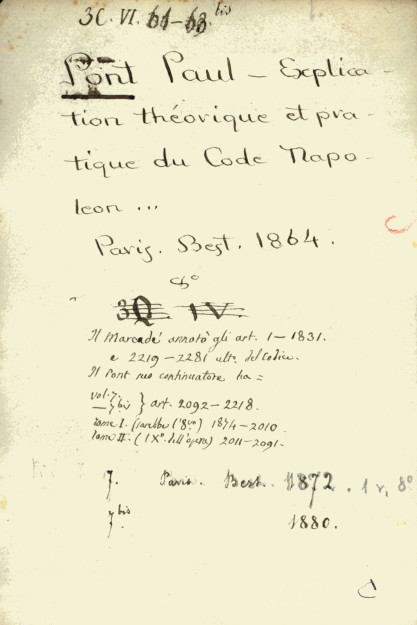 3C. VI. 61-68 bis
Pont Paul - Explica-
tion théorique et pra-
tique du Code Napo-
leon ...
Paris. Best. 1864.
8°
3Q IV.
Il Marcadé annotò gli art. 1-1831.
e 2219-2281 ult. del Codice.
Il Pont suo continuatore ha =
vol. 7.
— bis } art. 2092-2218.
tome I. (sarebbe l'8vo) 1874-2010.
tome II. (IX° dell'opera) 2011-2091.
7. Paris. Best. 1872. 1 v. 8°
7. bis 1880.